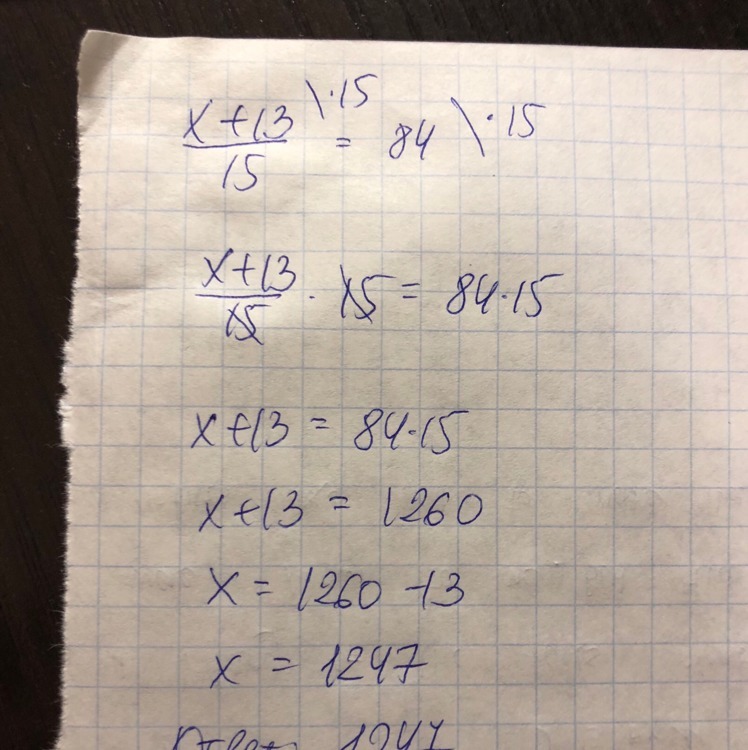 x+13 \·15
15 = 84 \·15
x+13
15 · 15 = 84·15
x+13 = 84·15
x+13 = 1260
x = 1260 -13
x = 1247
Ответ: 1247